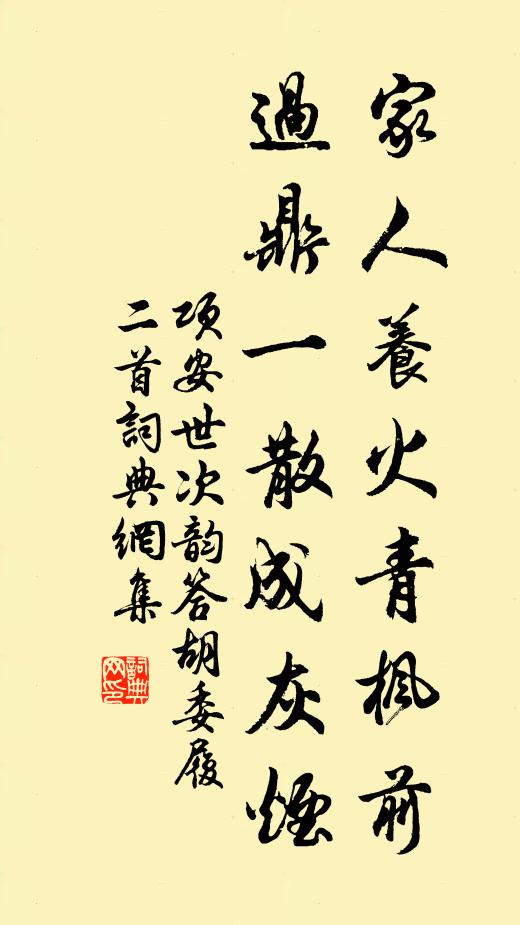 家人養火青楓前
過鼎一散成灰煙
項安世次韵答胡委履
二首詞典網集
詞典
网印